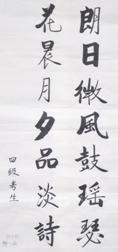 朗日微風鼓瑶瑟
花晨月夕品淡詩
四級考生